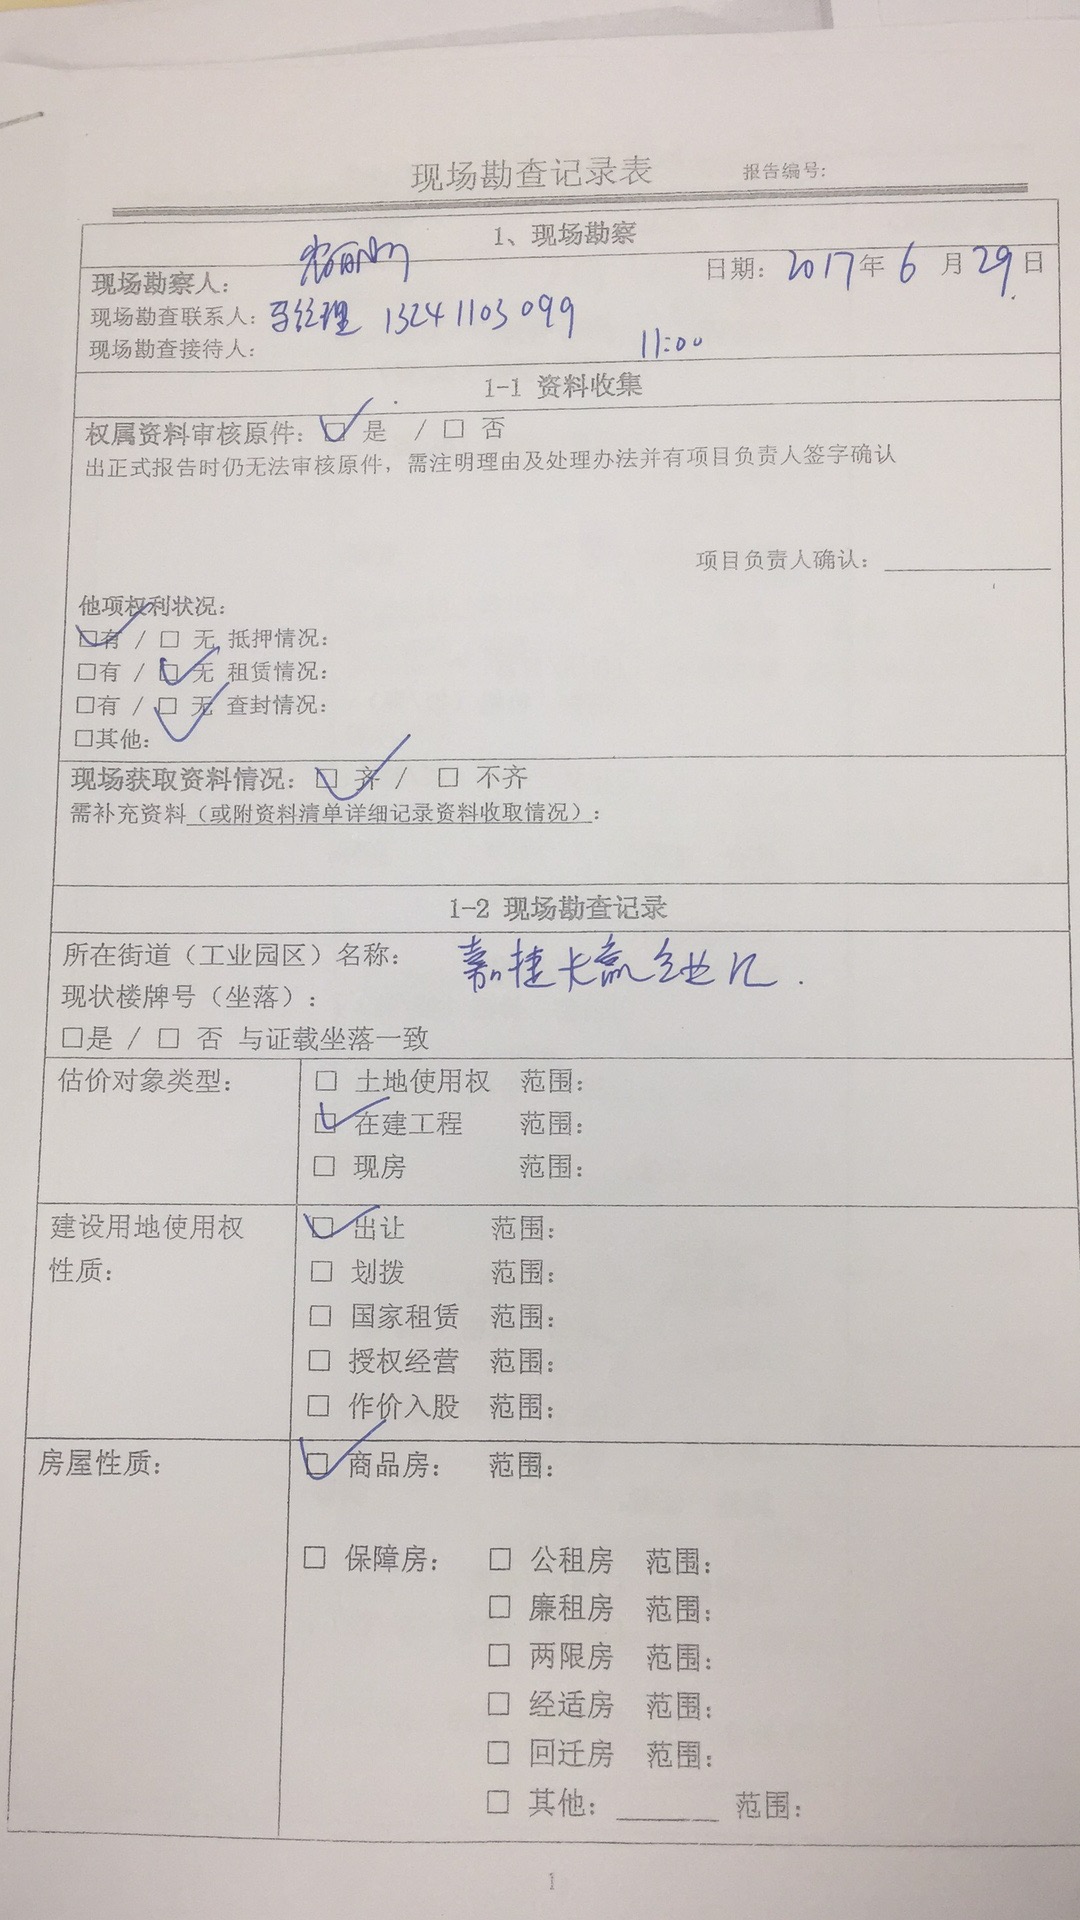 现场勘查记录表 报告编号:
1、现场勘察
现场勘察人: 日期: 2017年 6 月 29 日
现场勘查联系人: 马经理 13241103099
现场勘查接待人: 11:00
1-1 资料收集
权属资料审核原件: ☑ 是 / □ 否
出正式报告时仍无法审核原件，需注明理由及处理办法并有项目负责人签字确认
项目负责人确认: ________
他项权利状况:
☑有 / □ 无 抵押情况:
□有 / ☑ 无 租赁情况:
□有 / ☑ 无 查封情况:
□其他:
现场获取资料情况: ☑ 齐 / □ 不齐
需补充资料（或附资料清单详细记录资料收取情况）:
1-2 现场勘查记录
所在街道（工业园区）名称: 嘉捷 企业汇.
现状楼牌号（坐落）:
□是 / □ 否 与证载坐落一致
估价对象类型: □ 土地使用权 范围:
☑ 在建工程 范围:
□ 现房 范围:
建设用地使用权 ☑ 出让 范围:
性质: □ 划拨 范围:
□ 国家租赁 范围:
□ 授权经营 范围:
□ 作价入股 范围:
房屋性质: ☑ 商品房: 范围:
□ 保障房: □ 公租房 范围:
□ 廉租房 范围:
□ 两限房 范围:
□ 经适房 范围:
□ 回迁房 范围:
□ 其他: ______ 范围:
1